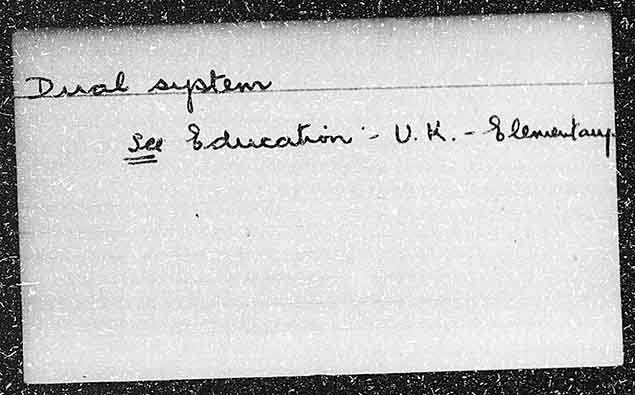 Dual system
see Education - U.K. - Elementary.